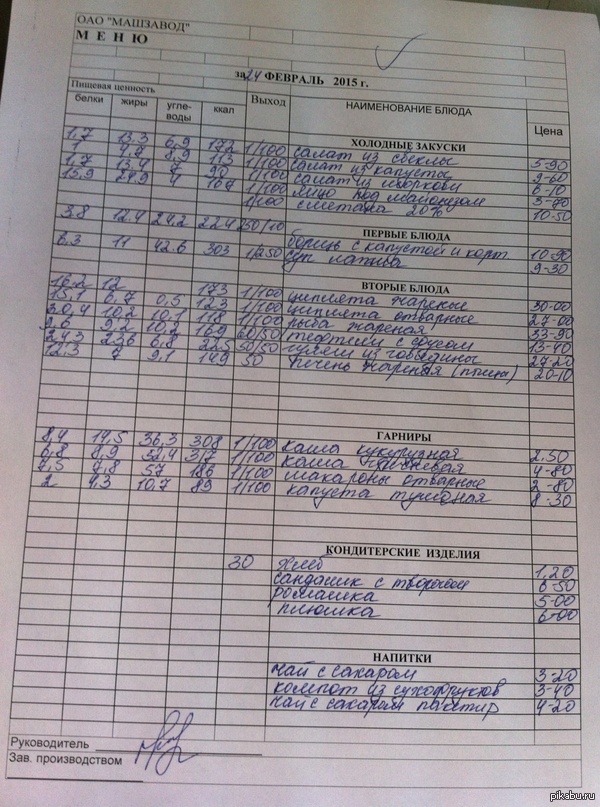 ОАО "МАШЗАВОД"
М Е Н Ю
за 24 ФЕВРАЛЬ 2015 г.
Пищевая ценность
белки жиры угле-воды ккал Выход НАИМЕНОВАНИЕ БЛЮДА Цена
ХОЛОДНЫЕ ЗАКУСКИ
1,7 13.3 6,9 172 1/100 салат из свеклы 5-90
1 4,8 8,9 113 1/100 салат из капусты 9-60
1,7 13,4 90 1/100 салат из моркови 6-10
15,9 24,9 4 1/100 яйцо под майонезом 3-70
1/100 сметана 20% 10-50
ПЕРВЫЕ БЛЮДА
3.8 12.4 24,2 224 250/10 борщ с капустой и карт 10-90
6.3 11 42.6 303 1/250 суп 9-30
ВТОРЫЕ БЛЮДА
16,2 12 173 1/100 циплята жареные 30-00
15,1 6,7 0,5 123 1/100 циплята отварные 27-00
30,4 10,2 10,1 118 1/100 рыба жареная 33-90
9,6 9,2 10,2 169 60/50 тефтели с соусом 13-40
24,3 23,6 6,8 225 50/50 гуляш из говядины 27-20
12,3 7 9,1 149 50 печень жареная 20-10
ГАРНИРЫ
8,4 19,5 36,3 308 1/100 каша кукурузная 2.50
6,8 8,9 317 1/100 каша 4-80
7,5 7,8 57 186 1/100 макароны отварные 2-80
2 4,3 10,7 89 1/100 капуста тушеная 8-30
КОНДИТЕРСКИЕ ИЗДЕЛИЯ
30 хлеб 1,20
с творогом 6-50
ромашка 5-00
плюшка 6-00
НАПИТКИ
чай с сахаром 3-20
компот из сухофруктов 3-40
чай с сахаром 4-20
Руководитель
Зав. производством
pikabu.ru